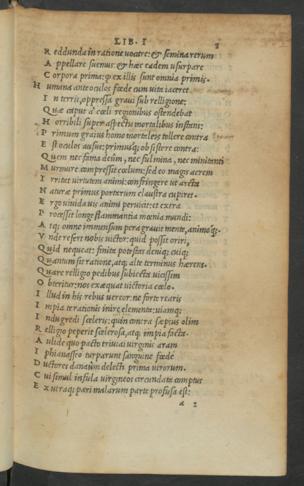 LIB. I
R eddunda in ratione uocare: & semina rerum
A ppellare suemus: & hæc eadem usurpare
C orpora prima; q̃ ex illis sunt omnia primis.
H umana ante oculos fœde cum uita iaceret
I n terris, oppressa graui sub relligione;
Q uæ caput a' cœli regionibus ostendebat
H orribili super aspectu mortalibus instans:
P rimum graius homo mortaleis tollere contra
E st oculos ausus; primusq; ob sistere contra:
Q uem nec fama deûm, nec fulmina, nec minitanti
M urmure compressit cœlum: sed eo magis acrem
I rritet uirtutem animi: confringere ut arcta
N aturæ primus portarum claustra cupiret.
E rgo uiuida uis animi peruicit: et extra
P rocessit longe flammantia mœnia mundi:
A tq; omne immensum pera grauit mente, animoq;.
V nde refert nobis uictor: quid possit oriri,
Q uid nequeat: finita potestas deniq; cuiq;
Q uantum sit ratione, atq; alte terminus hærens.
Q uare relligio pedibus subiecta uicissim
O bteritur: nos exæquat uictoria cœlo.
I llud in his rebus uereor: ne forte rearis
I mpia te rationis inire elementa: uiamq;
I ndugredi sceleris: quin contra sæpius olim
R elligio peperit scelerosa, atq; impia facta.
A ulide quo pacto triuiai uirginis aram
I phianasseo turparunt sanguine fœde
D uctores danaûm delecti prima uirorum.
C ui simul infula uirgineos circundata comptus
E x utraq; pari malarum parte profusa est:
a 2